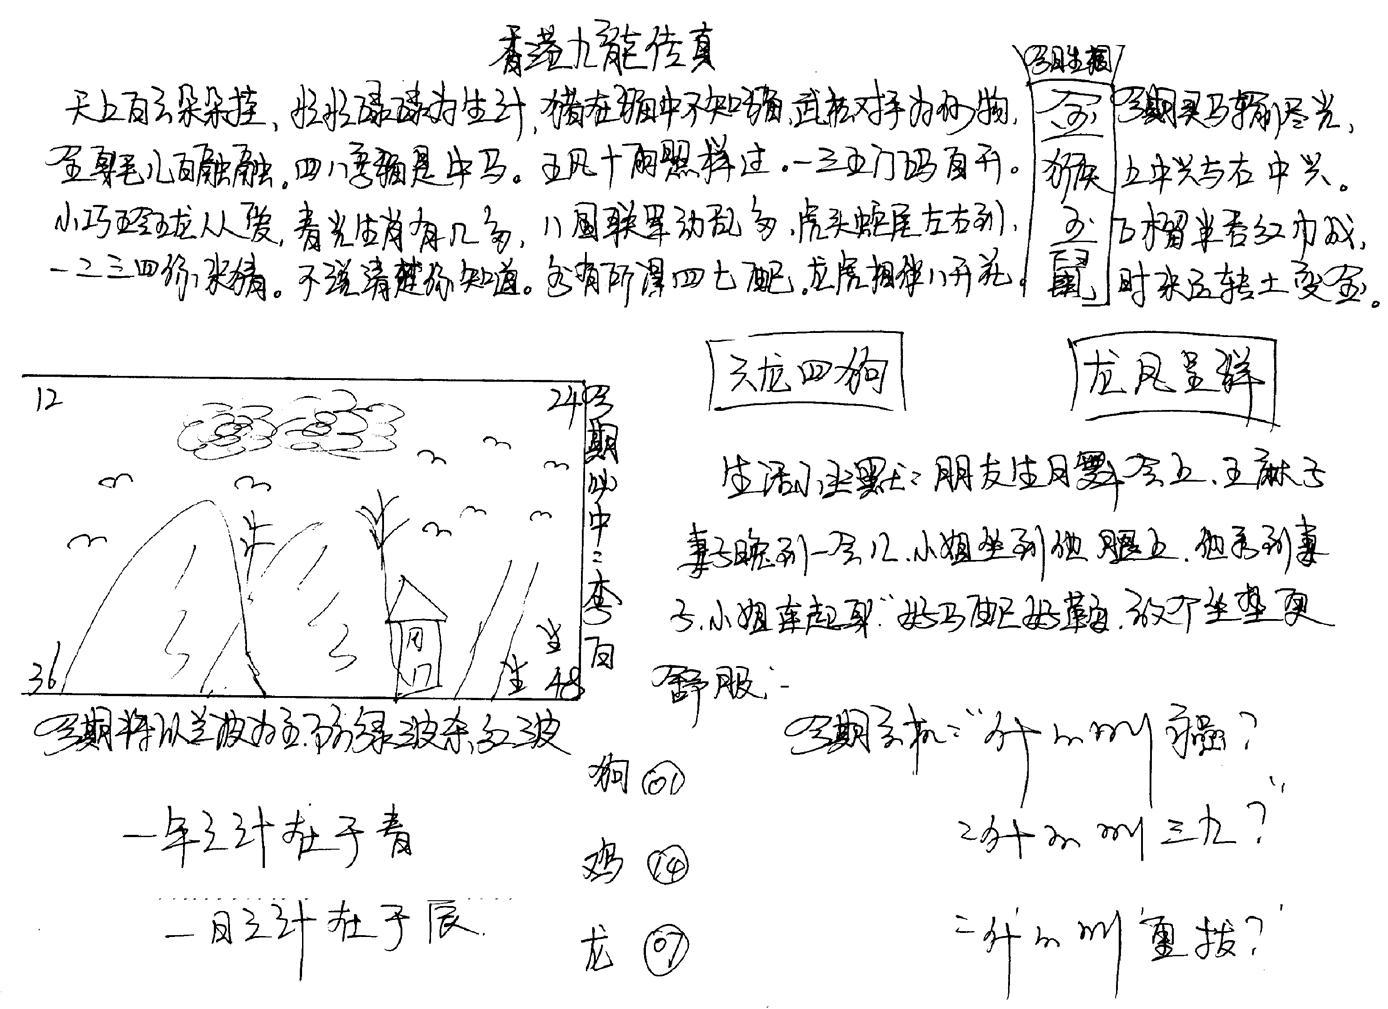 香港九龙传真
今日生相
天上百云朵朵挂，忙忙碌碌为生计，猪在福中不知福，武松对手为何物，
金 今期买马输尽光，
至尊毛儿百融融。四八季猪是中马。五风十雨照样过。一三五门码百开。
猴 上中兴与右中兴。
小巧玲珑龙人人爱，青光生肖有几多，八国联军动乱多，虎头蛇尾左右列，
玉 石榴半吞红巾成，
一二三四你来猜。不说清楚你知道。各有所泽四七配，龙虎相伴八开花。
鼠 时来运转土变金。
云龙四狗
龙凤呈祥
12
24
今期必中三李百
36
生
生
48
今期将以兰波为主，防绿波杀红波
生活小幽默：朋友生日舞会上，王麻子
妻子晚到一会儿，小姐坐到他腿上，他看到妻
子，小姐连起身"好马配好鞍，放个坐垫更
舒服"
今期玄机："什么叫福？
二什么叫三九？"
三什么叫重拨？
狗 01
鸡 14
龙 07
一年之计在于青
一日之计在于辰